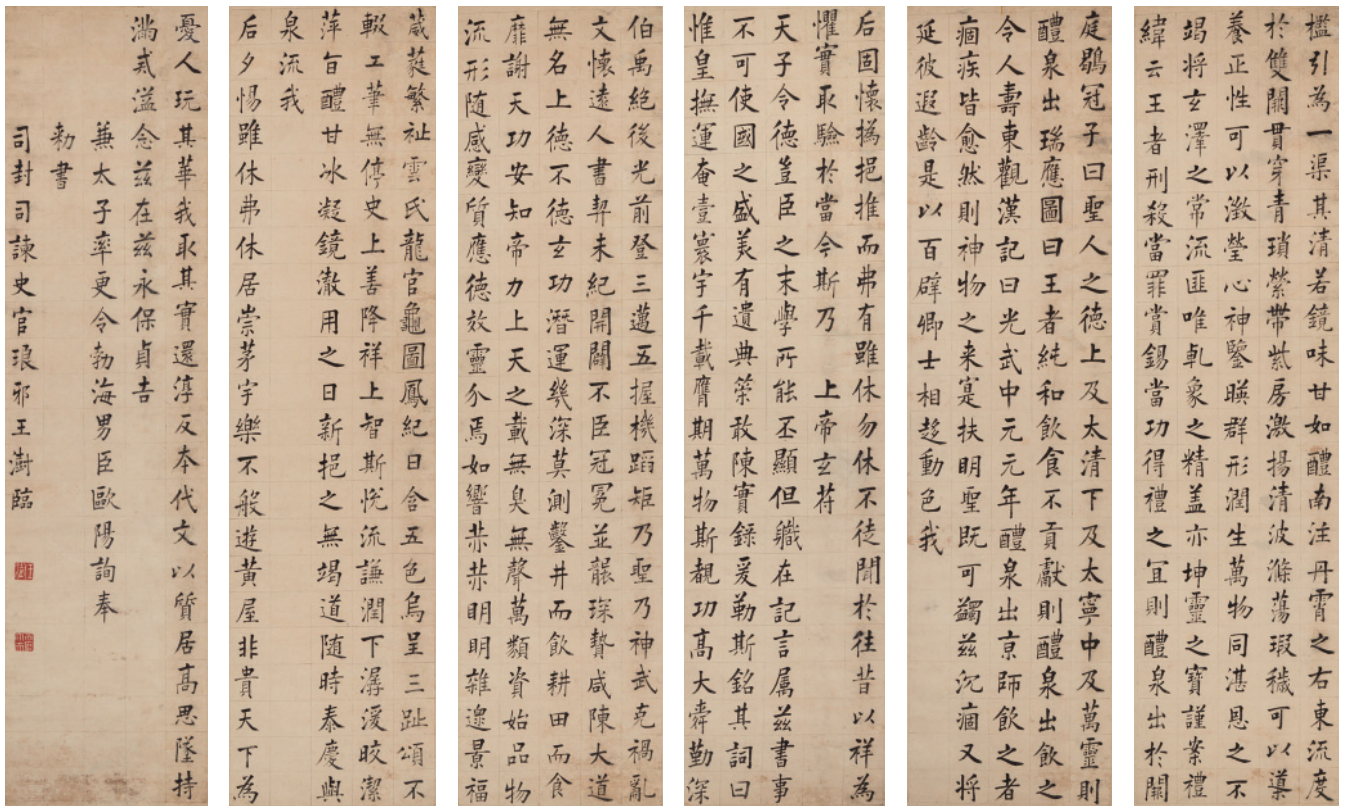 檻引為一渠其清若鏡味甘如醴南注丹霄之右東流度
於雙闕貫穿青瑣縈帶紫房激揚清波滌蕩瑕穢可以導
養正性可以澂瑩心神鑒暎群形潤生萬物同湛恩之不
竭将玄澤之常流匪唯乹象之精盖亦坤靈之寶謹案禮
緯云王者刑殺當罪賞錫當功得禮之冝則醴泉出於闕
庭鶡冠子曰聖人之德上及太清下及太寧中及萬靈則
醴泉出瑞應圖曰王者純和飲食不貢獻則醴泉出飲之
令人壽東觀漢記曰光武中元元年醴泉出京師飲之者
痼疾皆愈然則神物之来寔扶明聖既可蠲兹沉痼又将
延彼遐齡是以百辟卿士相趍動色我
后固懷撝挹推而弗有雖休勿休不徒聞於往昔以祥為
懼實取驗於當今斯乃 上帝玄苻
天子令德豈臣之末學所能丕顯但職在記言属兹書事
不可使國之盛美有遺典筞敢陳實錄爰勒斯銘其詞曰
惟皇撫運奄壹寰宇千載膺期萬物斯覩功髙大舜勤深
伯禹絶後光前登三邁五握機蹈矩乃聖乃神武克禍亂
文懷遠人書契未紀開闢不臣冠冕並襲琛贄咸陳大道
無名上德不德玄功潛運幾深莫測鑿井而飲耕田而食
靡謝天功安知帝力上天之載無臭無聲萬類資始品物
流形随感變質應德效靈介焉如響赫赫明明雜遝景福
葳蕤繁祉雲氏龍官龜圖鳳紀日含五色烏呈三趾頌不
輟工筆無停史上善降祥上智斯恱流謙潤下潺湲皎潔
萍旨醴甘冰凝鏡澈用之日新挹之無竭道随時泰慶與
泉流我
后夕惕雖休弗休居崇茅宇樂不般遊黄屋非貴天下為
憂人玩其華我取其實還淳反本代文以質居髙思墜持
滿戒溢念兹在兹永保貞吉
兼太子率更令勃海男臣歐陽詢奉
勅書
司封司諫史官琅邪王澍臨